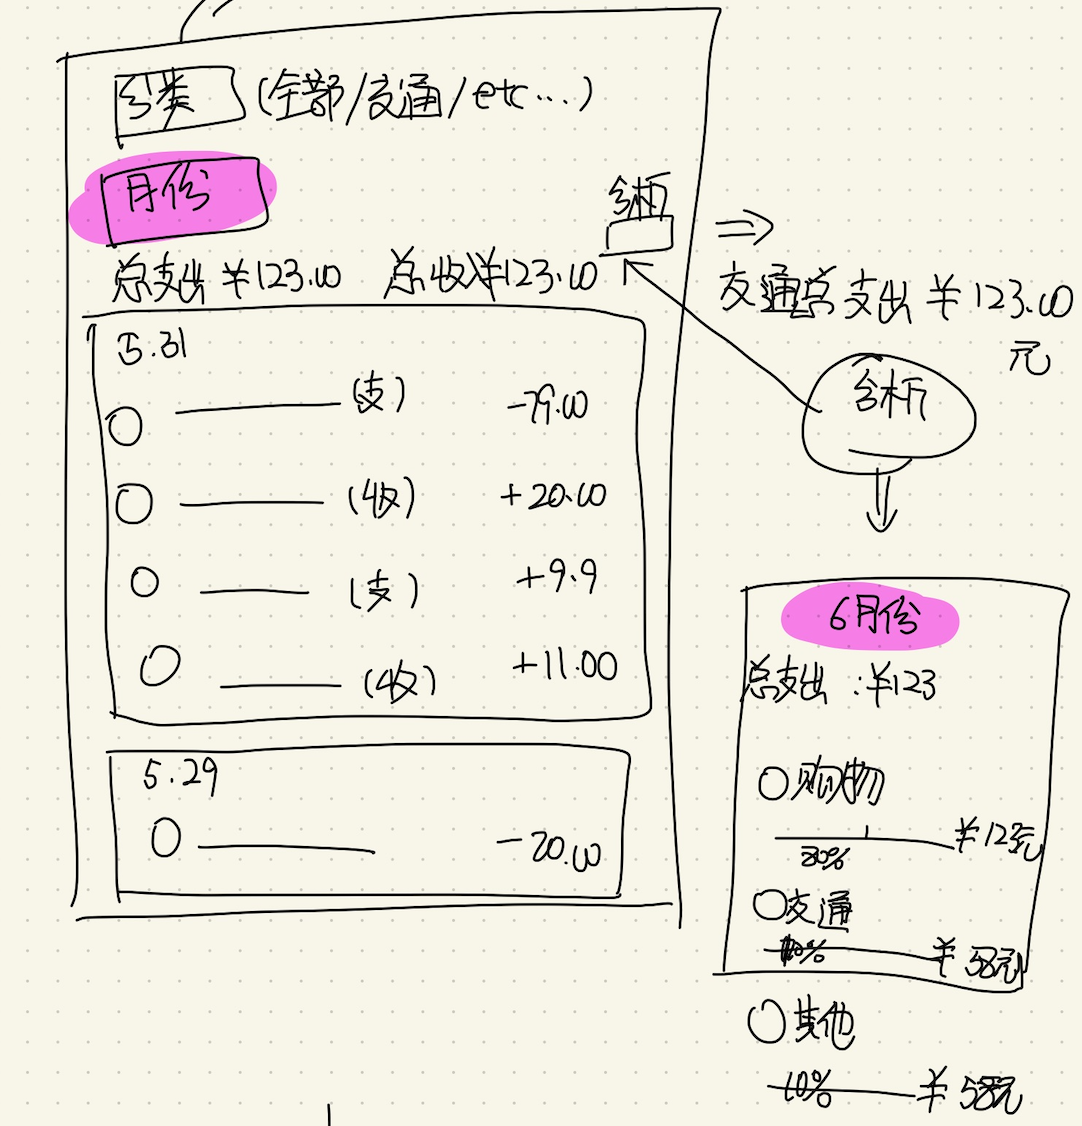 分类 (全部/交通/etc...)
月份
分析
总支出 ¥123.00 总收入¥123.00
5.31
(支) -79.00
(收) +20.00
(支) +9.9
(收) +11.00
5.29
-20.00
⇒
交通总支出 ¥123.00
元
分析
6月份
总支出:¥123
购物
30% ¥123元
交通
10% ¥58元
其他
10% ¥58元